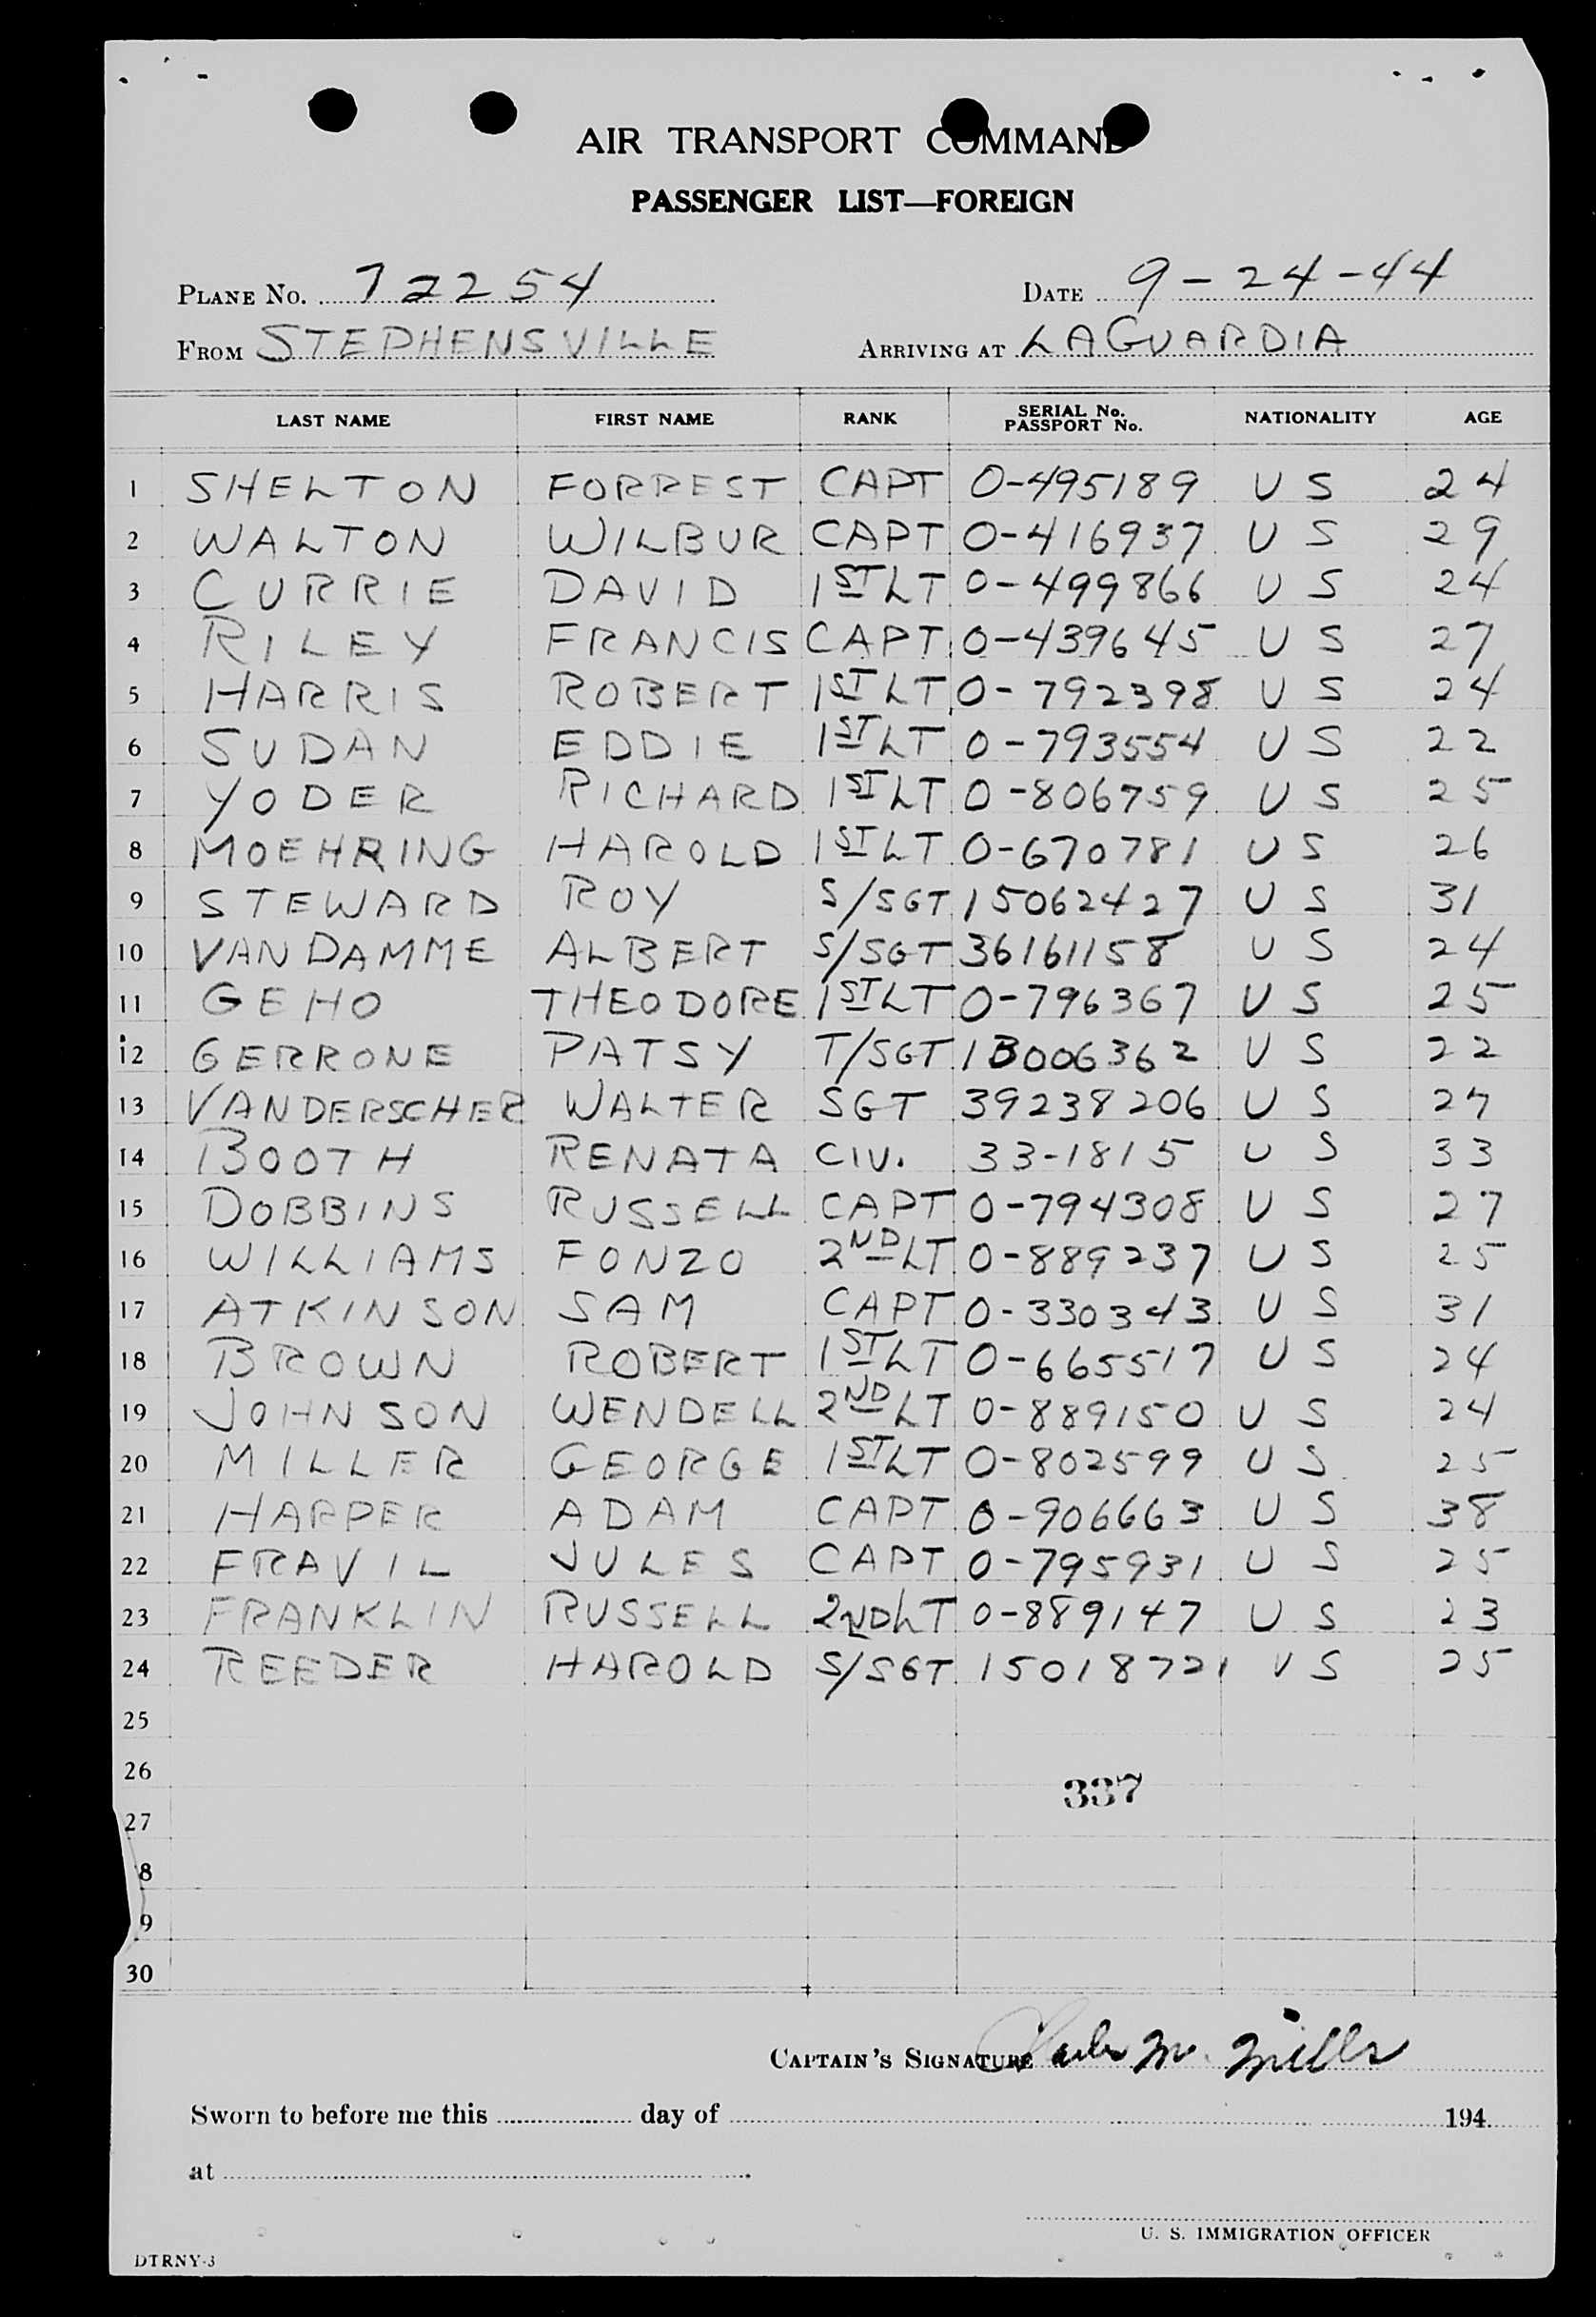 AIR TRANSPORT COMMAND
PASSENGER LIST—FOREIGN
PLANE No. 72254 DATE 9-24-44
FROM STEPHENSVILLE ARRIVING AT LAGUARDIA
LAST NAME FIRST NAME RANK SERIAL No. PASSPORT No. NATIONALITY AGE
1 SHELTON FORREST CAPT O-495189 U S 24
2 WALTON WILBUR CAPT O-416937 U S 29
3 CURRIE DAVID 1ST LT O-499866 U S 24
4 RILEY FRANCIS CAPT O-439645 U S 27
5 HARRIS ROBERT 1ST LT O-792398 U S 24
6 SUDAN EDDIE 1ST LT O-793554 U S 22
7 YODER RICHARD 1ST LT O-806759 U S 25
8 MOEHRING HAROLD 1ST LT O-670781 U S 26
9 STEWARD ROY S/SGT 15062427 U S 31
10 VAN DAMME ALBERT S/SGT 36161158 U S 24
11 GEHO THEODORE 1ST LT O-796367 U S 25
12 GERRONE PATSY T/SGT 13006362 U S 22
13 VANDERSCHER WALTER SGT 39238206 U S 27
14 BOOTH RENATA CIV. 33-1815 U S 33
15 DOBBINS RUSSELL CAPT O-794308 U S 27
16 WILLIAMS FONZO 2ND LT O-889237 U S 25
17 ATKINSON SAM CAPT O-330343 U S 31
18 BROWN ROBERT 1ST LT O-665517 U S 24
19 JOHNSON WENDELL 2ND LT O-889150 U S 24
20 MILLER GEORGE 1ST LT O-802599 U S 25
21 HARPER ADAM CAPT O-906663 U S 38
22 FRAVIL JULES CAPT O-795931 U S 25
23 FRANKLIN RUSSELL 2ND LT O-889147 U S 23
24 REEDER HAROLD S/SGT 15018721 U S 25
25
26
337
27
8
9
30
CAPTAIN'S SIGNATURE Charles M. Mills
Sworn to before me this day of 194
at
U. S. IMMIGRATION OFFICER
DTRNY-3